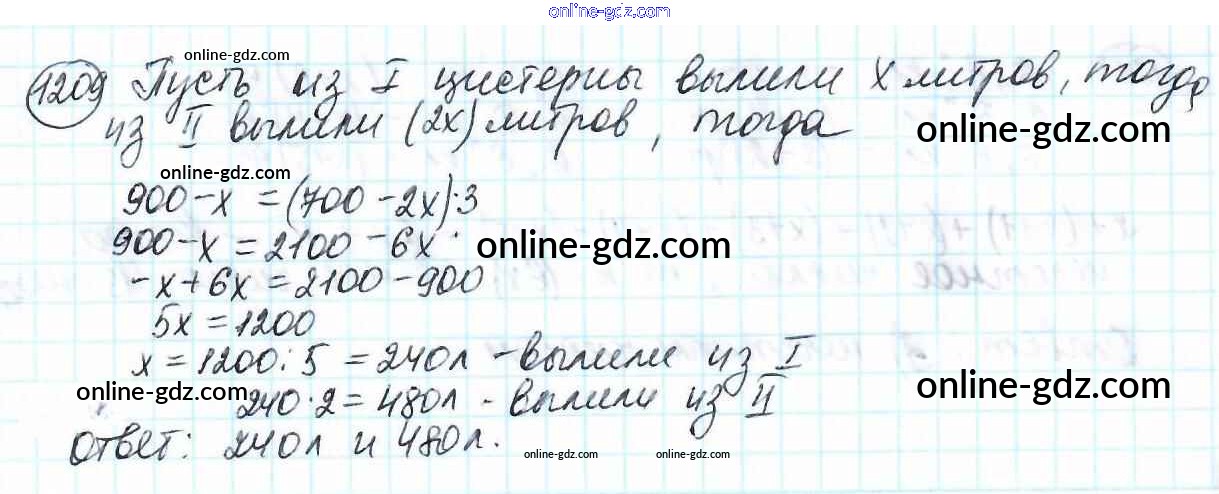 online-gdz.com
online-gdz.com
1209 Пусть из I цистерны вылили x литров, тогда
из II вылили (2x) литров, тогда
online-gdz.com
online-gdz.com
900-x = (700-2x)·3
900-x = 2100-6x
online-gdz.com
-x+6x=2100-900
5x=1200
x=1200:5=240л - вылили из I
online-gdz.com
online-gdz.com
240·2=480л - вылили из II
Ответ: 240л и 480л.
online-gdz.com
online-gdz.com